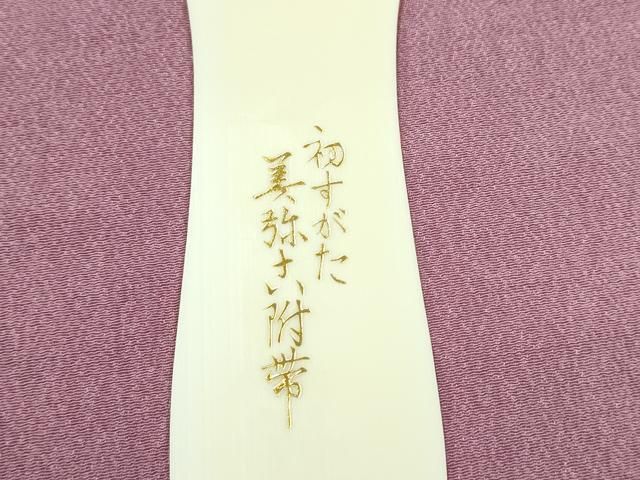 初すがた
美弥古附帯